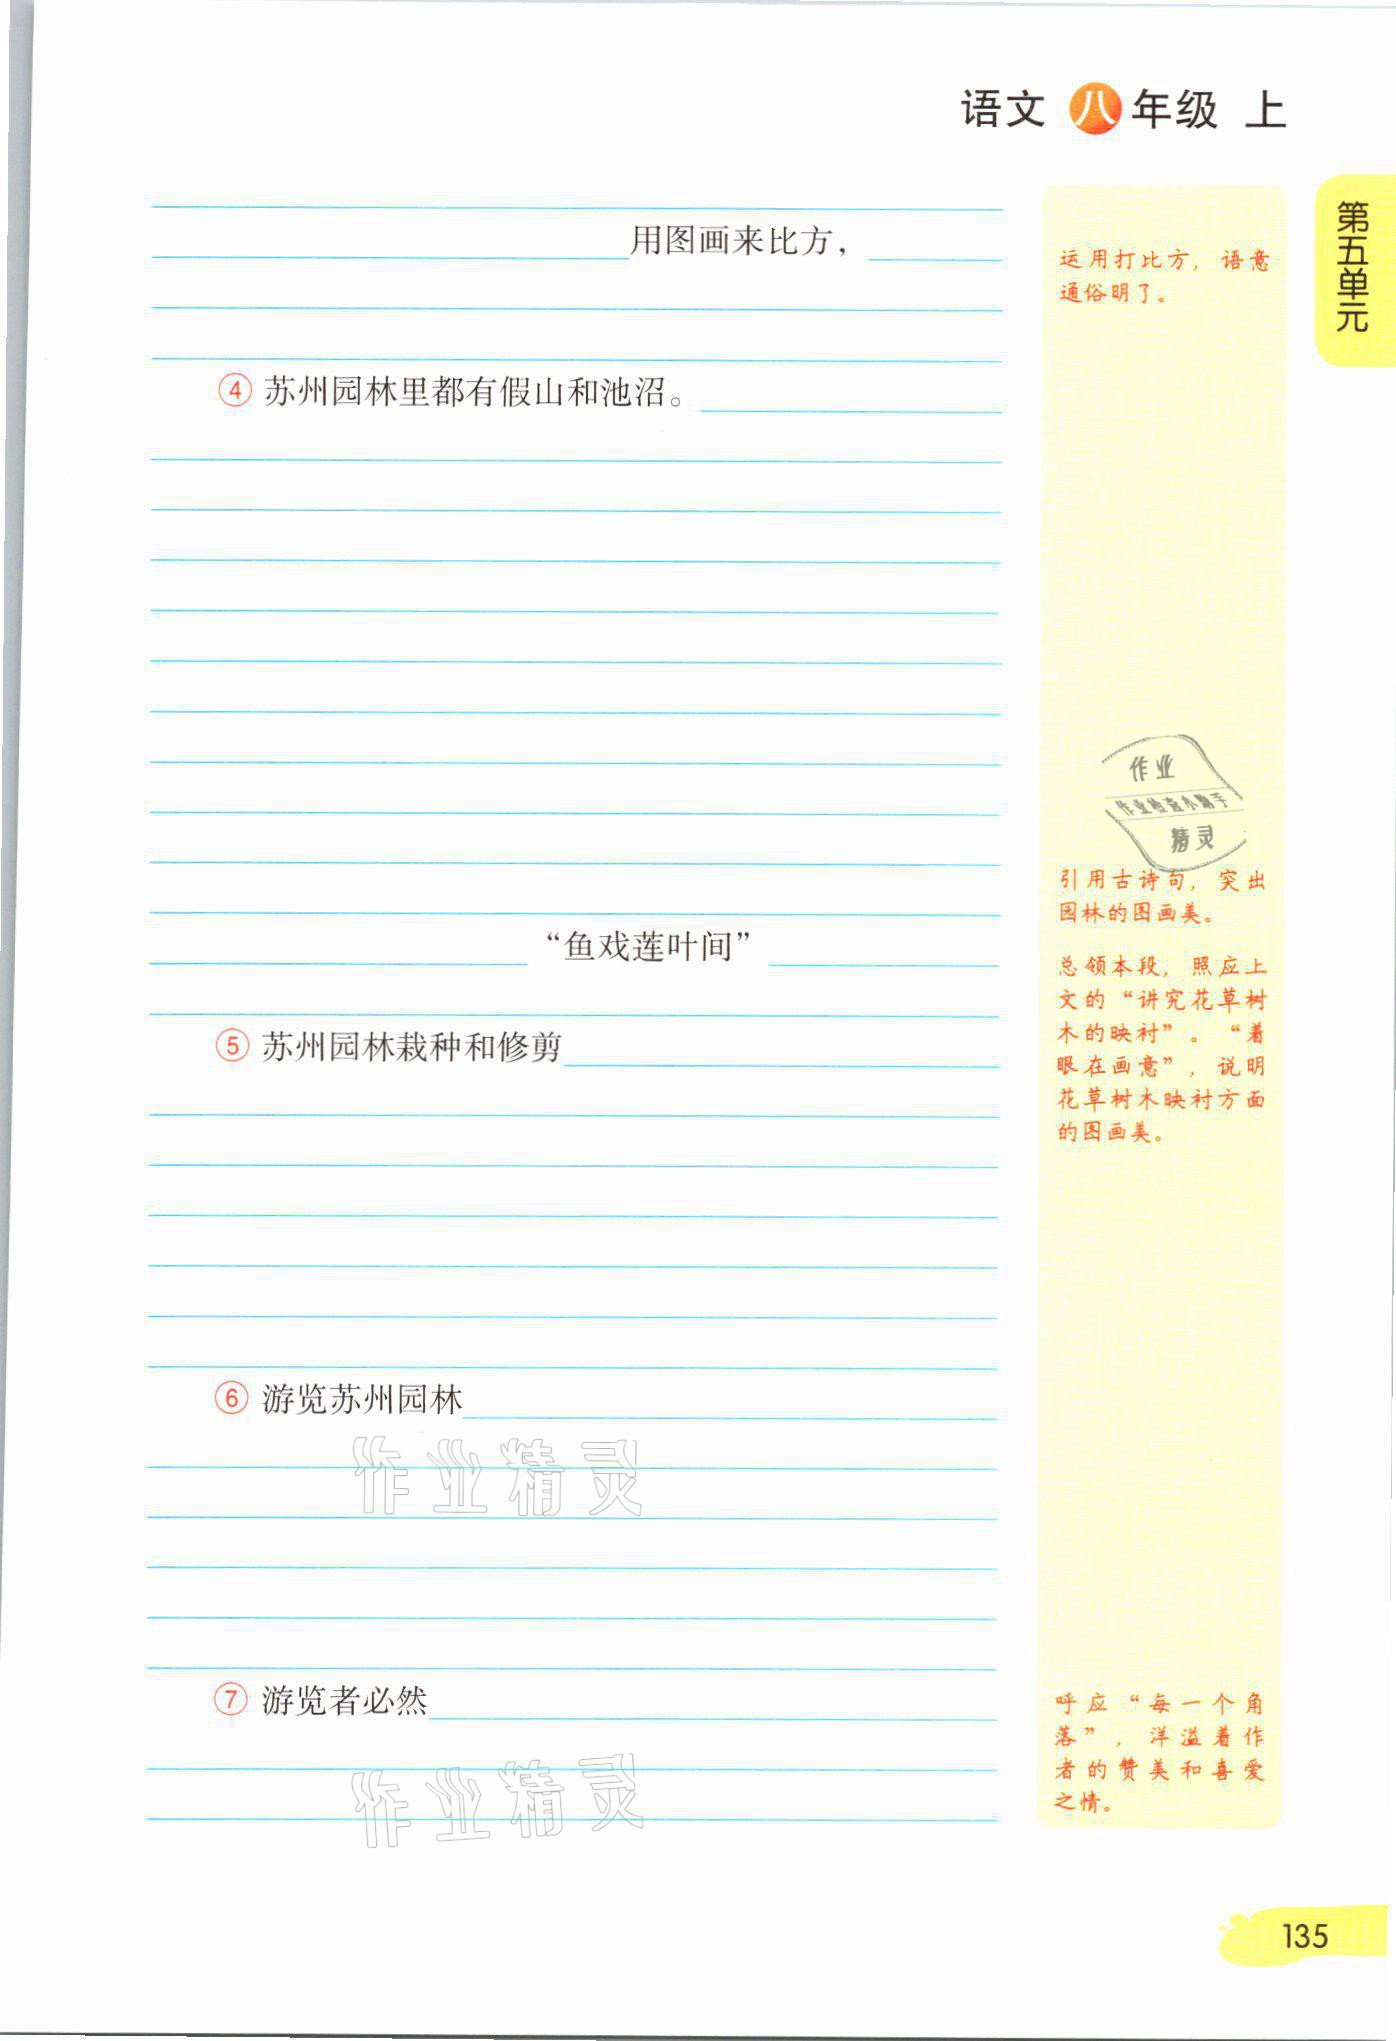 语文 八 年级 上
第五单元
用图画来比方，
运用打比方，语意
通俗明了。
④ 苏州园林里都有假山和池沼。
作业
作业检查小助手
精灵
引用古诗句，突出
园林的图画美。
“鱼戏莲叶间”
总领本段，照应上
文的“讲究花草树
木的映衬”。“着
眼在画意”，说明
花草树木映衬方面
的图画美。
⑤ 苏州园林栽种和修剪
⑥ 游览苏州园林
作业精灵
⑦ 游览者必然
呼应“每一个角
落”，洋溢着作
者的赞美和喜爱
之情。
作业精灵
135